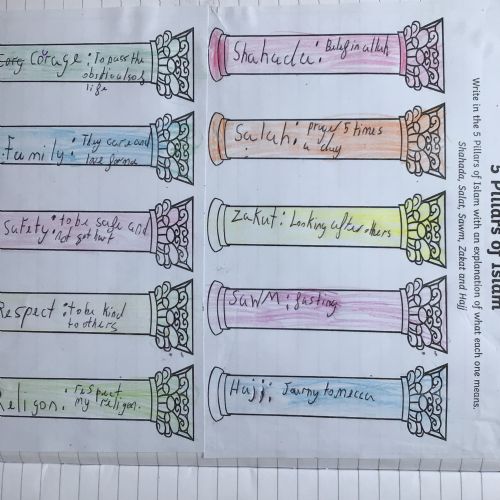 5 Pillars of Islam
Write in the 5 Pillars of Islam with an explanation of what each one means.
Shahada, Salat, Sawm, Zakat and Hajj
Shahada: Belief in allah
Salah: pray 5 times
a day
Zakut: Looking after others
Sawm: fasting
Hajj: Journy to mecca
Corage: To pass the
obsticals of
life
Family: They care and
love for me
Safety: to be safe and
not get hurt
Respect: to be kind
to others
Religon: respect
my religon.